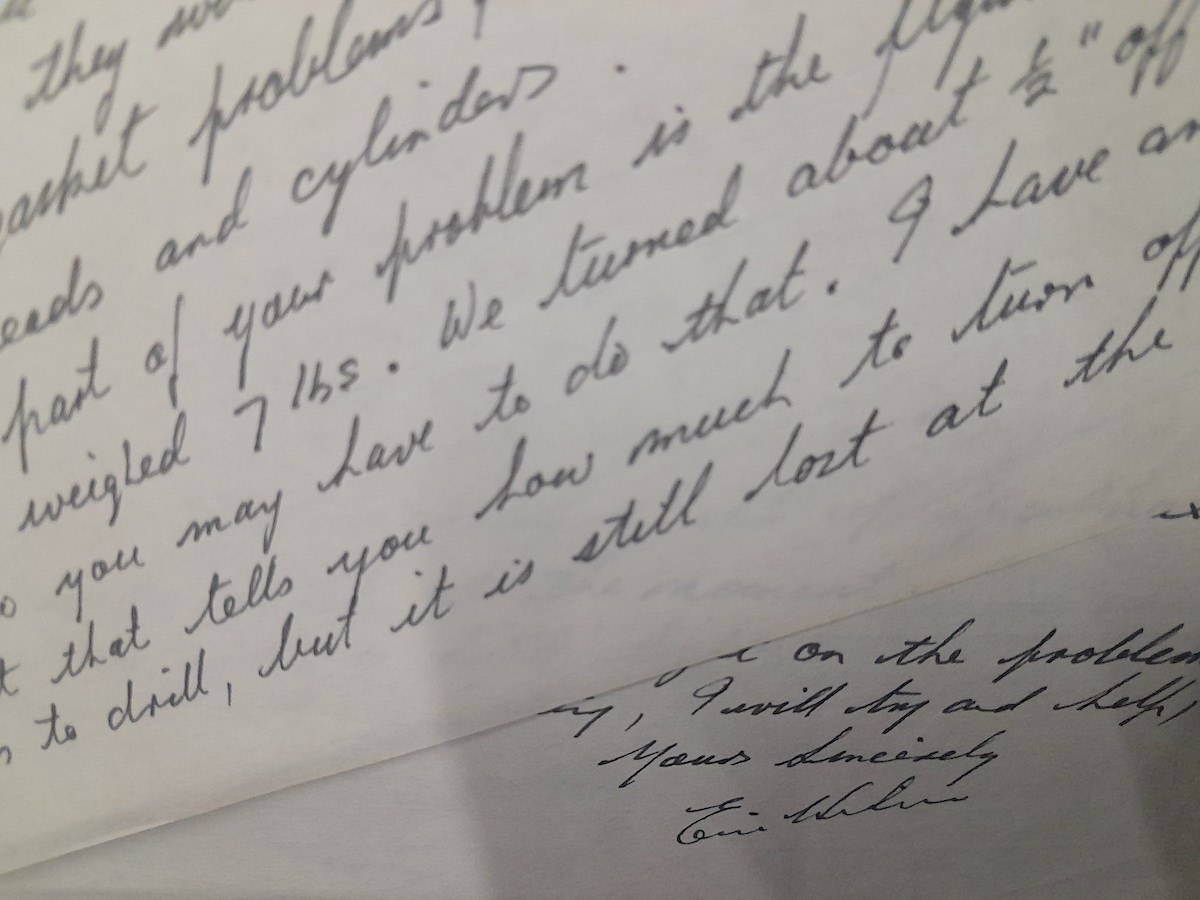 they
gasket problems,
and cylinders.
part of your problem is the
weighed 7 lbs. We turned about ½" off
you may have to do that. I have an
that tells you how much to turn off
to drill, but it is still lost at the
on the problem
, I will try and help,
Yours Sincerely
Eric